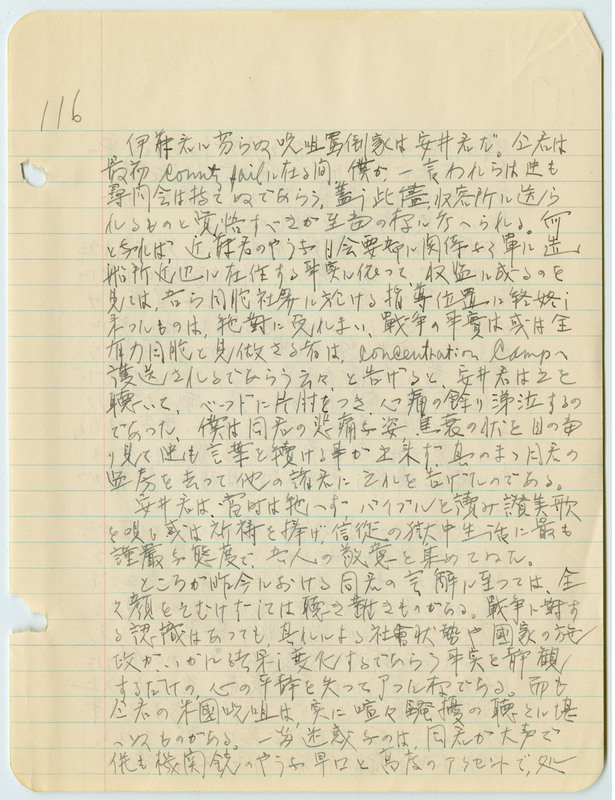 116
伊藤君に劣らぬ呪咀罵倒家は安井君だ。仝君は
最初 County jail に在る間、僕が一言われらは迚も
尋問会は持てぬであらう、蓋し此儘収容所に送ら
れるものと覚悟すべきが至当の様に考へられる。何
となれば、近藤君のやうな日会要部に関係なく単に造
船所近辺に在住する事実に依つて、収監に成るのを
見ては、吾ら同胞社界に於ける指導位置に終始し
来つたものは、絶対に免れまい、戦争の事実は或は全
有力同胞と見做さる者は、Concentration Camp へ
護送されるであらう云々、と告げると、安井君は之を
聴いて、ベッドに片肘をつき、心痛の余り涕泣するの
であつた。僕は同君の悲痛な姿、焦衰の状を目の当
り見て迚も言葉を続ける事が出来ず、其のまゝ同君の
監房を去つて他の諸君に之れを告げたのである。
安井君は、当時は絶へず、バイブルを読み讃美歌
を唄ひ或は祈祷を捧げ、信徒の獄中生活に最も
謹厳な態度で、吾人の敬意を集めてゐた。
ところが昨今に於ける同君の言解に至つては、全
く顔をそむけずには聴き難きものがある。戦争に対す
る認識はあつても、其れによる社会状勢や国家の施
政が、いかに結果し変化するであらう事実を静観
するだけの、心の平静を失つて了つた様である。而も
仝君の米国呪咀は、実に喧々騒擾の聴くに堪
へぬものがある。一番迷惑なのは、同君が大声で
侭も機関銃のやうな早口と高度のアクセントで、処